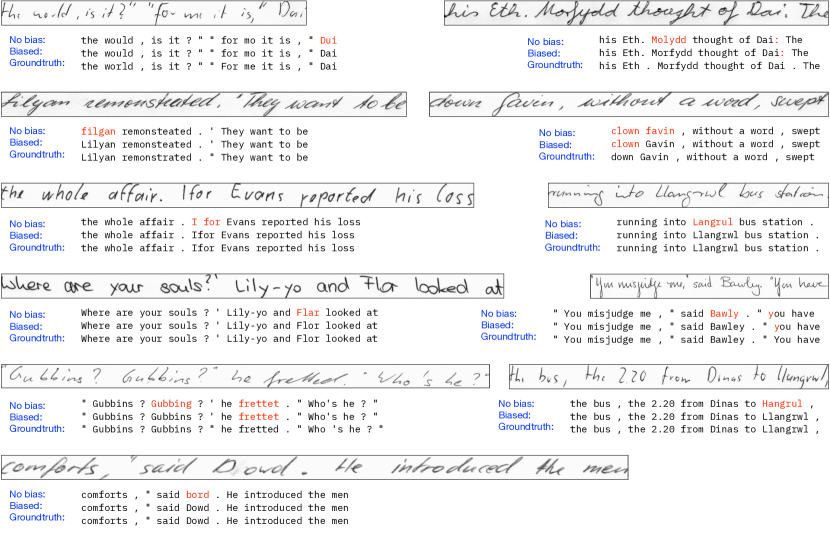 the world, is it?" "for me it is," Dai
No bias: the would , is it ? " " for mo it is , " Dui
Biased: the would , is it ? " " for mo it is , " Dai
Groundtruth: the world , is it ? " " For me it is , " Dai
his Eth. Morfydd thought of Dai. The
No bias: his Eth. Molydd thought of Dai: The
Biased: his Eth. Morfydd thought of Dai: The
Groundtruth: his Eth . Morfydd thought of Dai . The
Lilyan remonstrated. 'They want to be
No bias: filgan remonsteated . ' They want to be
Biased: Lilyan remonsteated . ' They want to be
Groundtruth: Lilyan remonstrated . " They want to be
down Gavin, without a word, swept
No bias: clown favin , without a word , swept
Biased: clown Gavin , without a word , swept
Groundtruth: down Gavin , without a word , swept
the whole affair. Ifor Evans reported his loss
No bias: the whole affair . I for Evans reported his loss
Biased: the whole affair . Ifor Evans reported his loss
Groundtruth: the whole affair . Ifor Evans reported his loss
running into Llangrwl bus station.
No bias: running into Langrul bus station .
Biased: running into Llangrwl bus station .
Groundtruth: running into Llangrwl bus station .
Where are your souls?' Lily-yo and Flor looked at
No bias: Where are your souls ? ' Lily-yo and Flar looked at
Biased: Where are your souls ? ' Lily-yo and Flor looked at
Groundtruth: Where are your souls ? ' Lily-yo and Flor looked at
"You misjudge me," said Bawley. "You have
No bias: " You misjudge me , " said Bawly . " you have
Biased: " You misjudge me , " said Bawley . " you have
Groundtruth: " You misjudge me , " said Bawley . " You have
"Gubbins? Gubbins?" he fretted. "Who's he?"
No bias: " Gubbins ? Gubbing ? ' he frettet . " Who's he ? "
Biased: " Gubbins ? Gubbins ? ' he frettet . " Who's he ? "
Groundtruth: " Gubbins ? Gubbins ? " he fretted . " Who 's he ? "
the bus, the 2.20 from Dinas to Llangrwl,
No bias: the bus , the 2.20 from Dinas to Hangrul ,
Biased: the bus , the 2.20 from Dinas to Llangrwl ,
Groundtruth: the bus , the 2.20 from Dinas to Llangrwl ,
comforts," said Dowd. He introduced the men
No bias: comforts , " said bord . He introduced the men
Biased: comforts , " said Dowd . He introduced the men
Groundtruth: comforts , " said Dowd . He introduced the men